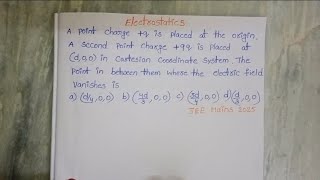 Electrostatics
A point charge +q is placed at the origin.
A second point charge +9q is placed at
(d,0,0) in Cartesian Coordinate System. The
point in between them where the electric field
Vanishes is
a) (d/4,0,0) b) (4d/3,0,0) c) (3d/4,0,0) d) (d/3,0,0)
JEE Mains 2025